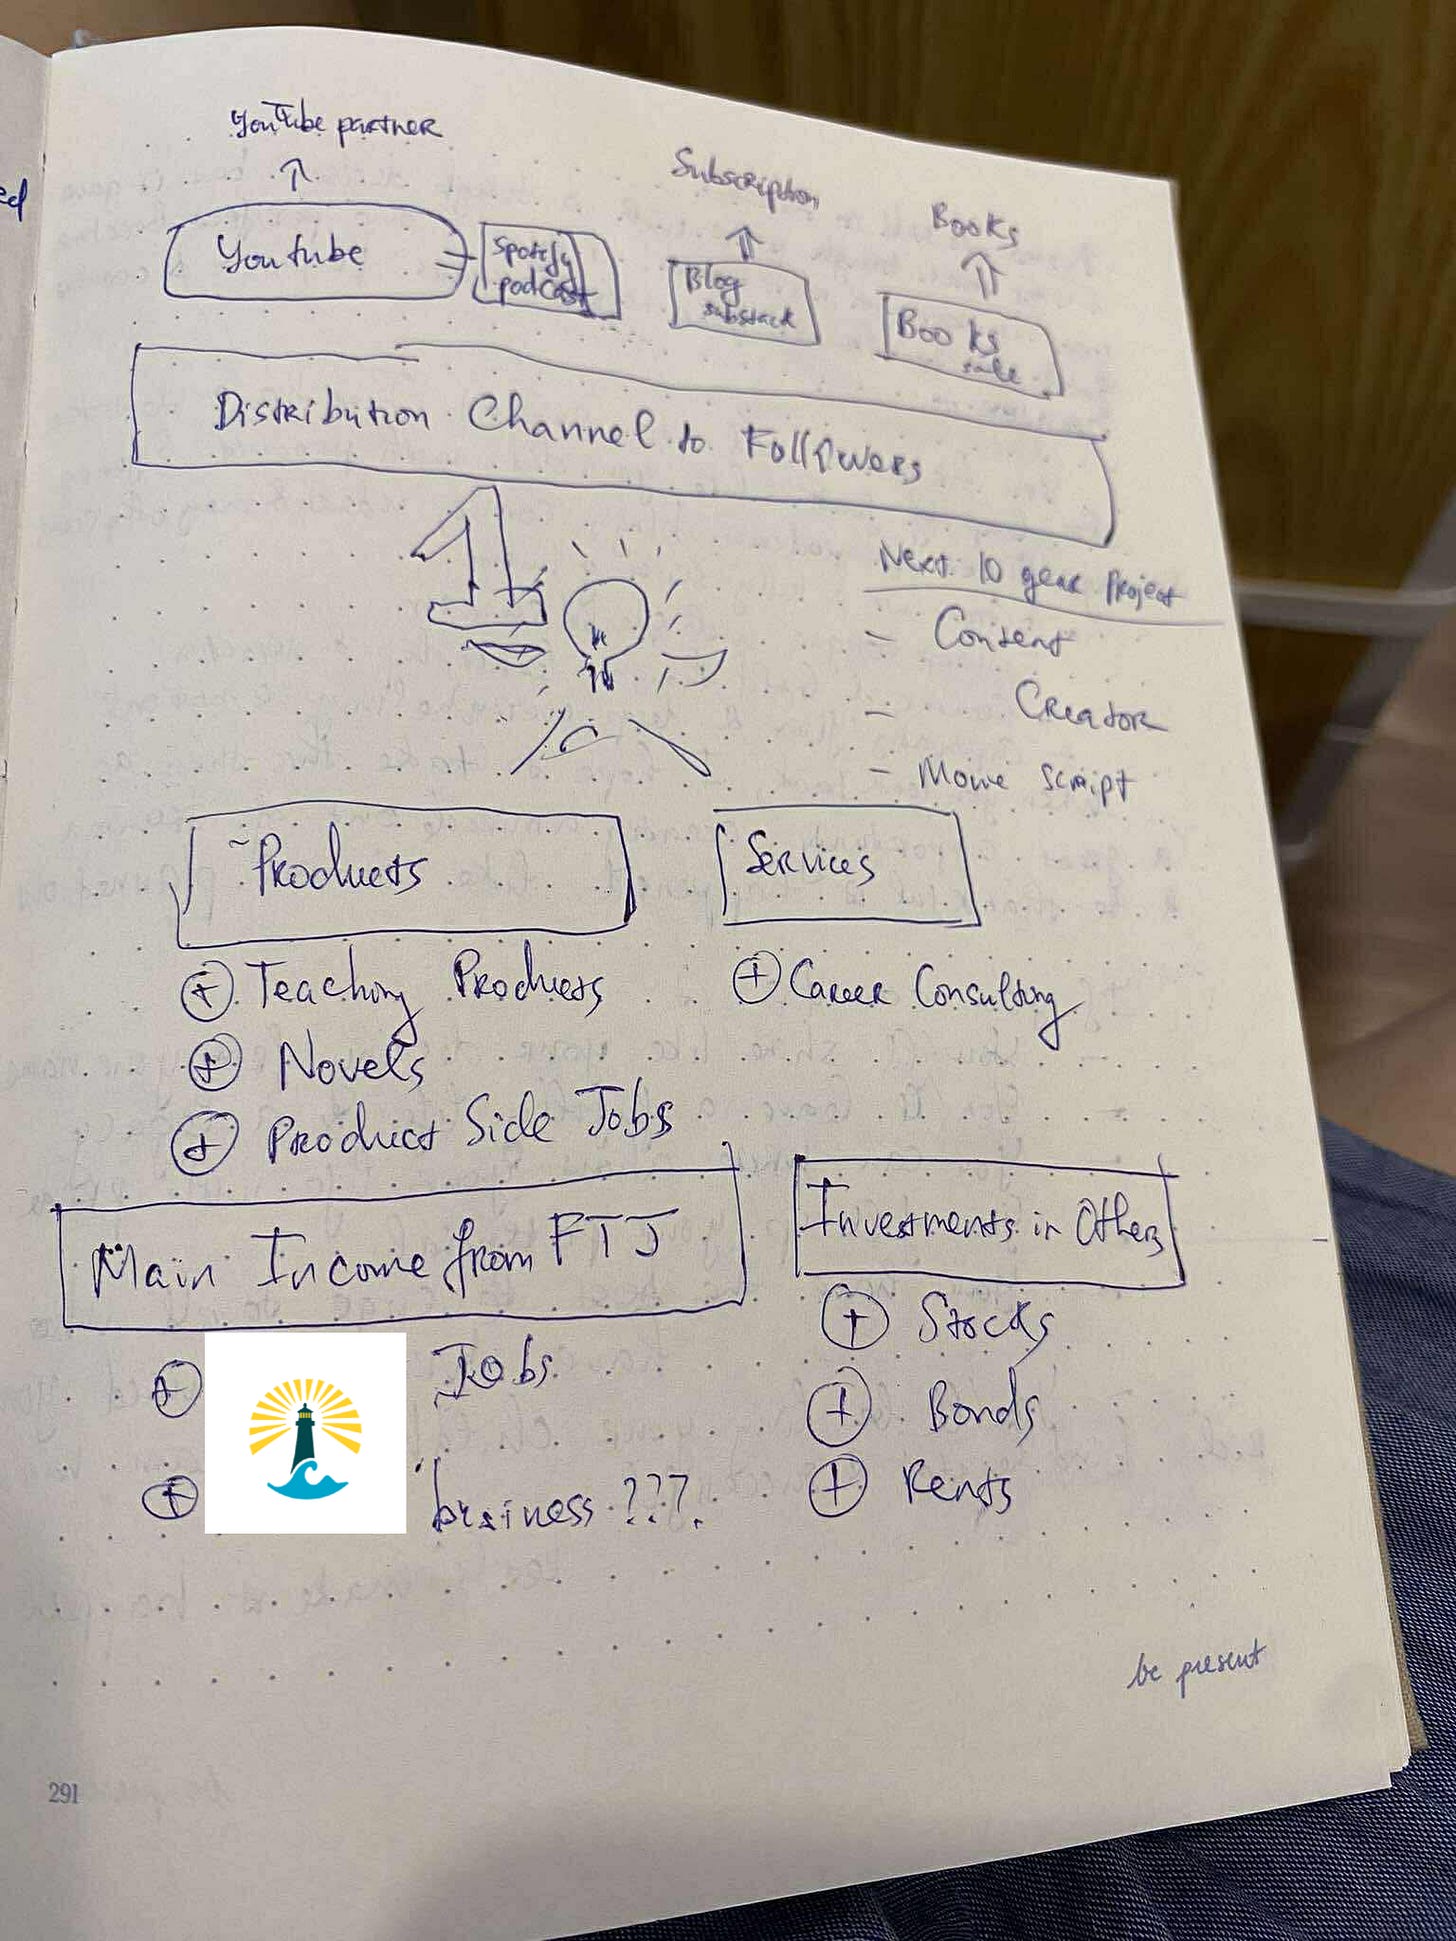 ed
YouTube partner
Subscription
Books
Youtube
Spotify
podcast
Blog
substack
Books
sale
Distribution Channel to Followers
1
Next 10 year Project
- Content
- Creator
- Movie script
Products
Services
+ Teaching Products
+ Career Consulting
+ Novels
+ Product Side Jobs
Main Income from FTJ
Investments in Others
+ Jobs
+ Stocks
+ Bonds
+ business ???
+ Rents
be present
291